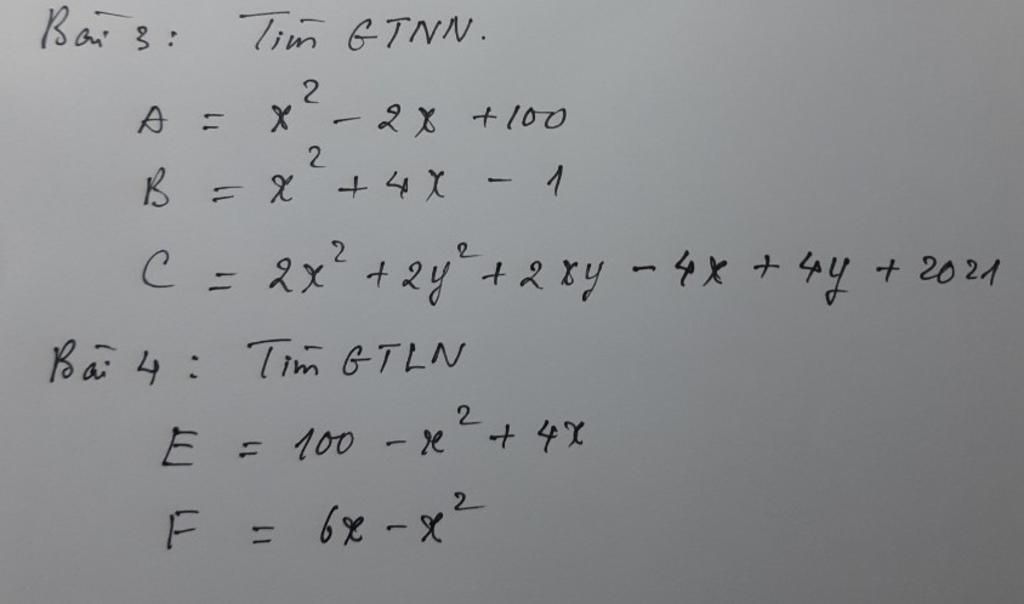 Bài 3: Tìm GTNN.
A = x² - 2x + 100
B = x² + 4x - 1
C = 2x² + 2y² + 2xy - 4x + 4y + 2021
Bài 4: Tìm GTLN
E = 100 - x² + 4x
F = 6x - x²